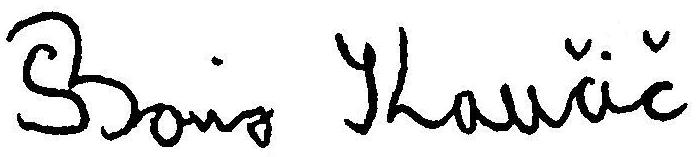 Boris Kavčič